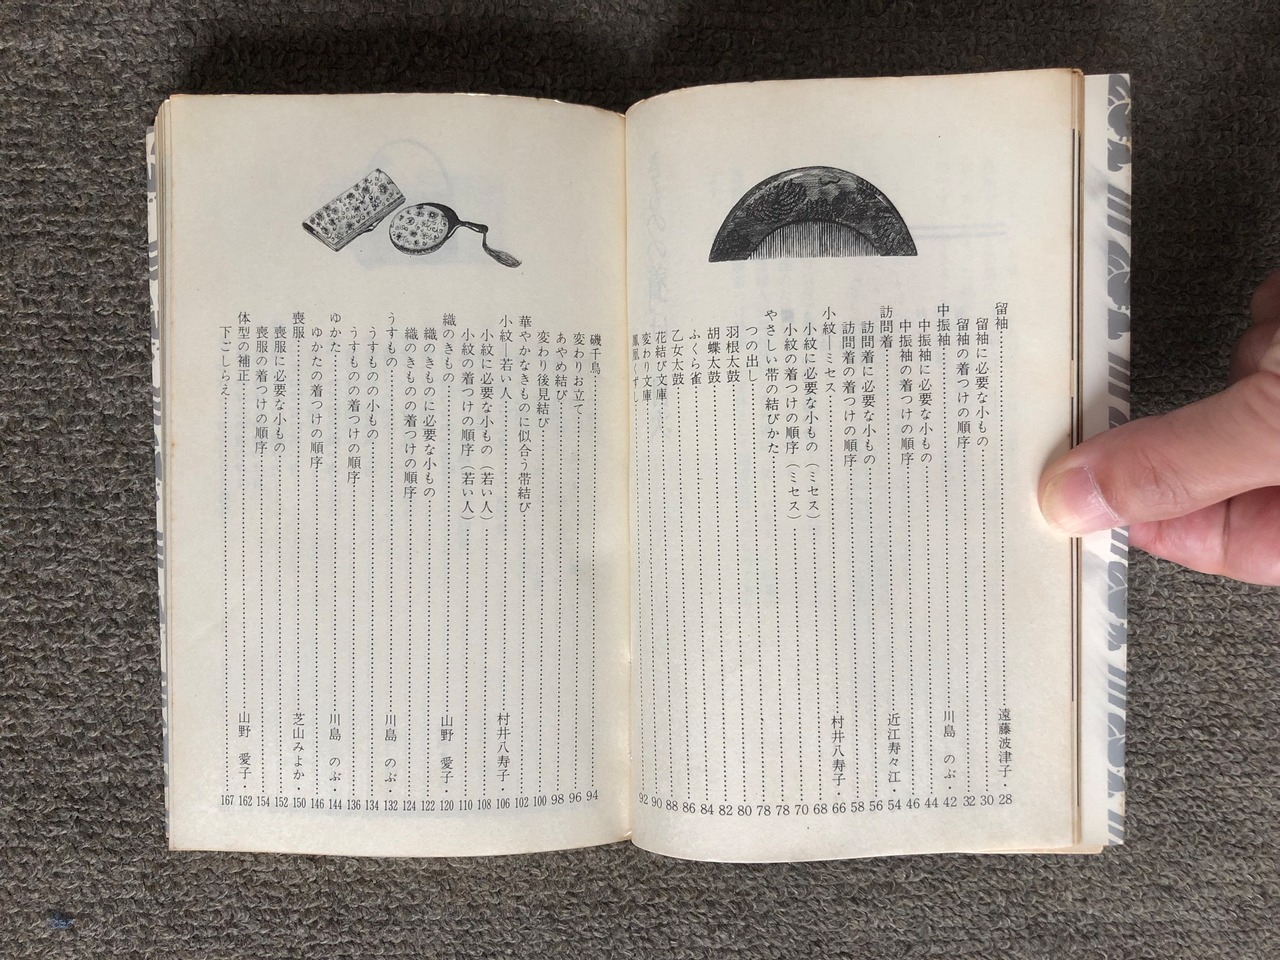 留袖……遠藤波津子・28
留袖に必要な小もの……30
留袖の着つけの順序……32
中振袖……川島 のぶ・42
中振袖に必要な小もの……44
中振袖の着つけの順序……46
訪問着……近江寿々江・54
訪問着に必要な小もの……56
訪問着の着つけの順序……58
小紋―ミセス……村井八寿子・66
小紋に必要な小もの(ミセス)……68
小紋の着つけの順序(ミセス)……70
やさしい帯の結びかた……78
つの出し……78
羽根太鼓……80
胡蝶太鼓……82
ふくら雀……84
乙女太鼓……86
花結び文庫……88
変わり文庫……90
鳳凰くずし……92
磯千鳥……94
変わりお立て……96
あやめ結び……98
変わり後見結び……100
華やかなきものに似合う帯結び……102
小紋―若い人……村井八寿子・106
小紋に必要な小もの(若い人)……108
小紋の着つけの順序(若い人)……110
織のきもの……山野 愛子・120
織のきものに必要な小もの……122
織のきものの着つけの順序……124
うすもの……川島 のぶ・132
うすものの小もの……134
うすものの着つけの順序……136
ゆかた……川島 のぶ・144
ゆかたの着つけの順序……146
喪服……芝山みよか・150
喪服に必要な小もの……152
喪服の着つけの順序……154
体型の補正……山野 愛子・162
下ごしらえ……167